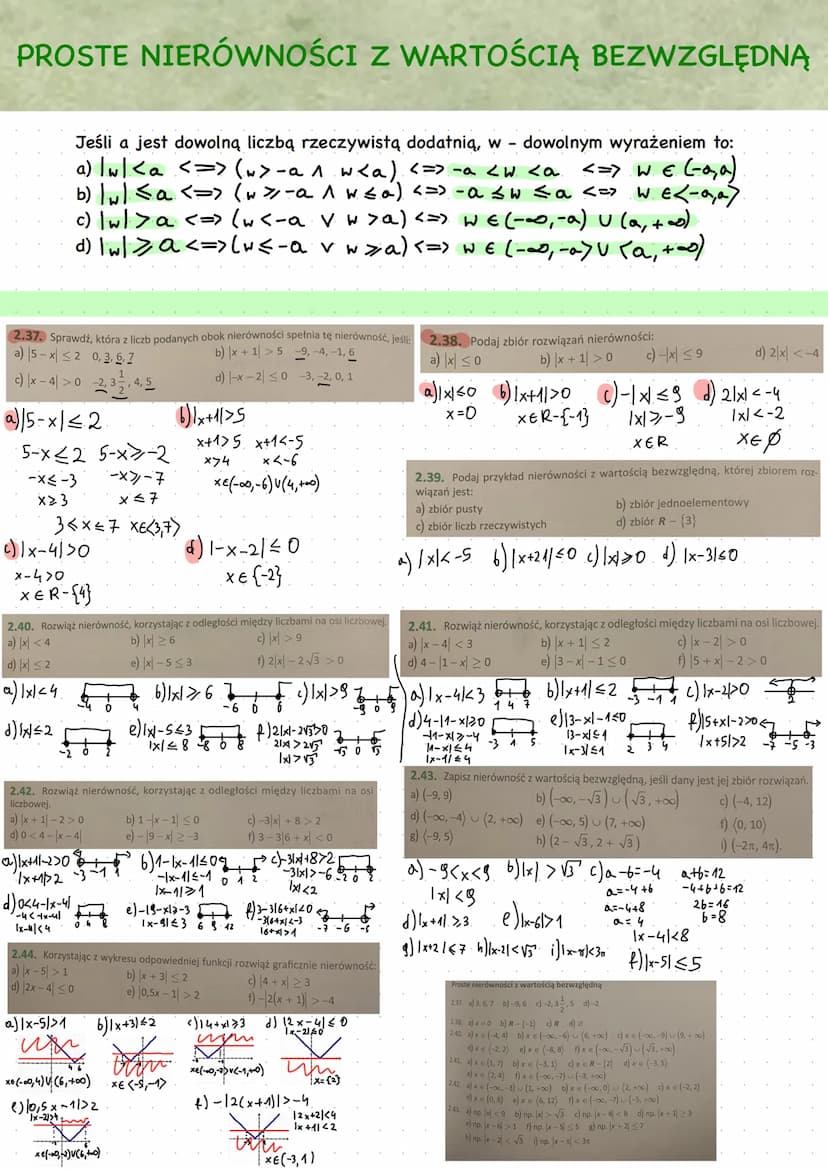 PROSTE NIERÓWNOŚCI Z WARTOŚCIĄ BEZWZGLĘDNĄ
Jeśli a jest dowolną liczbą rzeczywistą dodatnią, w - dowolnym wyrażeniem to:
a) |w|<a <=> (w>-a ∧ w<a) <=> -a<w<a <=> w∈(-a,a)
b) |w|⩽a <=> (w⩾-a ∧ w⩽a) <=> -a⩽w⩽a <=> w∈<-a,a>
c) |w|>a <=> (w<-a ∨ w>a) <=> w∈(-∞,-a) ∪ (a,+∞)
d) |w|⩾a <=> (w⩽-a ∨ w⩾a) <=> w∈(-∞,-a> ∪ <a,+∞)
2.37. Sprawdź, która z liczb podanych obok nierówności spełnia tę nierówność, jeśli:
a) |5 − x| ≤ 2 0, 3, 6, 7 b) |x + 1| > 5 −9, −4, −1, 6
c) |x − 4| > 0 −2, 3 1/2, 4, 5 d) |−x − 2| ≤ 0 −3, −2, 0, 1
a) |5-x|⩽2
5-x⩽2 5-x⩾-2
-x⩽-3 -x⩾-7
x⩾3 x⩽7
3⩽x⩽7 x∈<3,7>
b) |x+1|>5
x+1>5 x+1<-5
x>4 x<-6
x∈(-∞,-6)∪(4,+∞)
c) |x-4|>0
x-4>0
x∈R-{4}
d) |-x-2|⩽0
x∈{-2}
2.38. Podaj zbiór rozwiązań nierówności:
a) |x| ≤ 0 b) |x + 1| > 0 c) −|x| ≤ 9 d) 2|x| < −4
a) |x|⩽0 b) |x+1|>0 c) -|x|⩽9 d) 2|x|<-4
x=0 x∈R-{-1} |x|⩾-9 |x|<-2
x∈R x∈∅
2.39. Podaj przykład nierówności z wartością bezwzględną, której zbiorem roz-
wiązań jest:
a) zbiór pusty b) zbiór jednoelementowy
c) zbiór liczb rzeczywistych d) zbiór R − {3}
a) |x|<-5 b) |x+21|⩽0 c) |x|⩾0 d) |x-3|⩽0
2.40. Rozwiąż nierówność, korzystając z odległości między liczbami na osi liczbowej.
a) |x| < 4 b) |x| ≥ 6 c) |x| > 9
d) |x| ≤ 2 e) |x| − 5 ≤ 3 f) 2|x| − 2√3 > 0
a) |x|<4 -4 0 4 b) |x|⩾6 -6 0 6 c) |x|>9 -9 0 9
d) |x|⩽2 -2 0 2 e) |x|-5⩽3 |x|⩽8 -8 0 8 f) 2|x|-2√3>0
2|x|>2√3
|x|>√3 -√3 0 √3
2.41. Rozwiąż nierówność, korzystając z odległości między liczbami na osi liczbowej.
a) |x − 4| < 3 b) |x + 1| ≤ 2 c) |x − 2| > 0
d) 4 − |1 − x| ≥ 0 e) |3 − x| − 1 ≤ 0 f) |5 + x| − 2 > 0
a) |x-4|<3 1 4 7 b) |x+1|⩽2 -3 -1 1 c) |x-2|>0 2
d) 4-|1-x|⩾0 e) |3-x|-1⩽0 f) |5+x|-2>0
-|1-x|⩾-4 |3-x|⩽1 |x+5|>2
|1-x|⩽4 |x-3|⩽1
|x-1|⩽4 -3 1 5 2 3 4 -7 -5 -3
2.42. Rozwiąż nierówność, korzystając z odległości między liczbami na osi
liczbowej.
a) |x + 1| − 2 > 0 b) 1 − |x − 1| ≤ 0 c) −3|x| + 8 > 2
d) 0 < 4 − |x − 4| e) −|9 − x| ≥ −3 f) 3 − 3|6 + x| < 0
a) |x+1|-2>0 b) 1-|x-1|⩽0 c) -3|x|+8>2
|x+1|>2 -3 -1 1 -|x-1|⩽-1 0 1 2 -3|x|>-6 -2 0 2
|x-1|⩾1 |x|<2
d) 0<4-|x-4| e) -|9-x|⩾-3 f) 3-3|6+x|<0
-4<-|x-4| |x-9|⩽3 -3|6+x|<-3
|x-4|<4 0 4 8 6 9 12 |6+x|>1 -7 -6 -5
2.43. Zapisz nierówność z wartością bezwzględną, jeśli dany jest jej zbiór rozwiązań.
a) (−9, 9) b) (−∞, −√3) ∪ (√3, +∞) c) (−4, 12)
d) (−∞, −4⟩ ∪ ⟨2, +∞) e) (−∞, 5) ∪ (7, +∞) f) ⟨0, 10⟩
g) ⟨−9, 5⟩ h) (2 − √3, 2 + √3) i) (−2π, 4π).
a) -9<x<9 b) |x|>√3 c) a-b=-4 a+b=12
|x|<9 a=-4+b -4+b+b=12
a=-4+8 2b=16
a=4 b=8
|x-4|<8
d) |x+1|⩾3 e) |x-6|>1 f) |x-5|⩽5
g) |x+2|⩽7 h) |x-2|<√3 i) |x-π|<3π
2.44. Korzystając z wykresu odpowiedniej funkcji rozwiąż graficznie nierówność:
a) |x − 5| > 1 b) |x + 3| ≤ 2 c) |4 + x| ≥ 3
d) |2x − 4| ≤ 0 e) |0,5x − 1| > 2 f) −|2(x + 1)| > −4
a) |x-5|>1 b) |x+3|⩽2 c) |4+x|⩾3 d) |2x-4|⩽0
|x-2|⩽0
x∈(-∞,4)∪(6,+∞) x∈<-5,-1> x∈(-∞,-7>∪<-1,+∞) x={2}
e) |0,5x-1|>2 f) -|2(x+1)|>-4
|x-2|>4 |2x+2|<4
|x+1|<2
x∈(-∞,-2)∪(6,+∞) x∈(-3,1)
Proste nierówności z wartością bezwzględną
2.37. a) 3, 6, 7 b) −9, 6 c) −2, 3 1/2, 5 d) −2
2.38. a) x = 0 b) R − {−1} c) R d) ∅